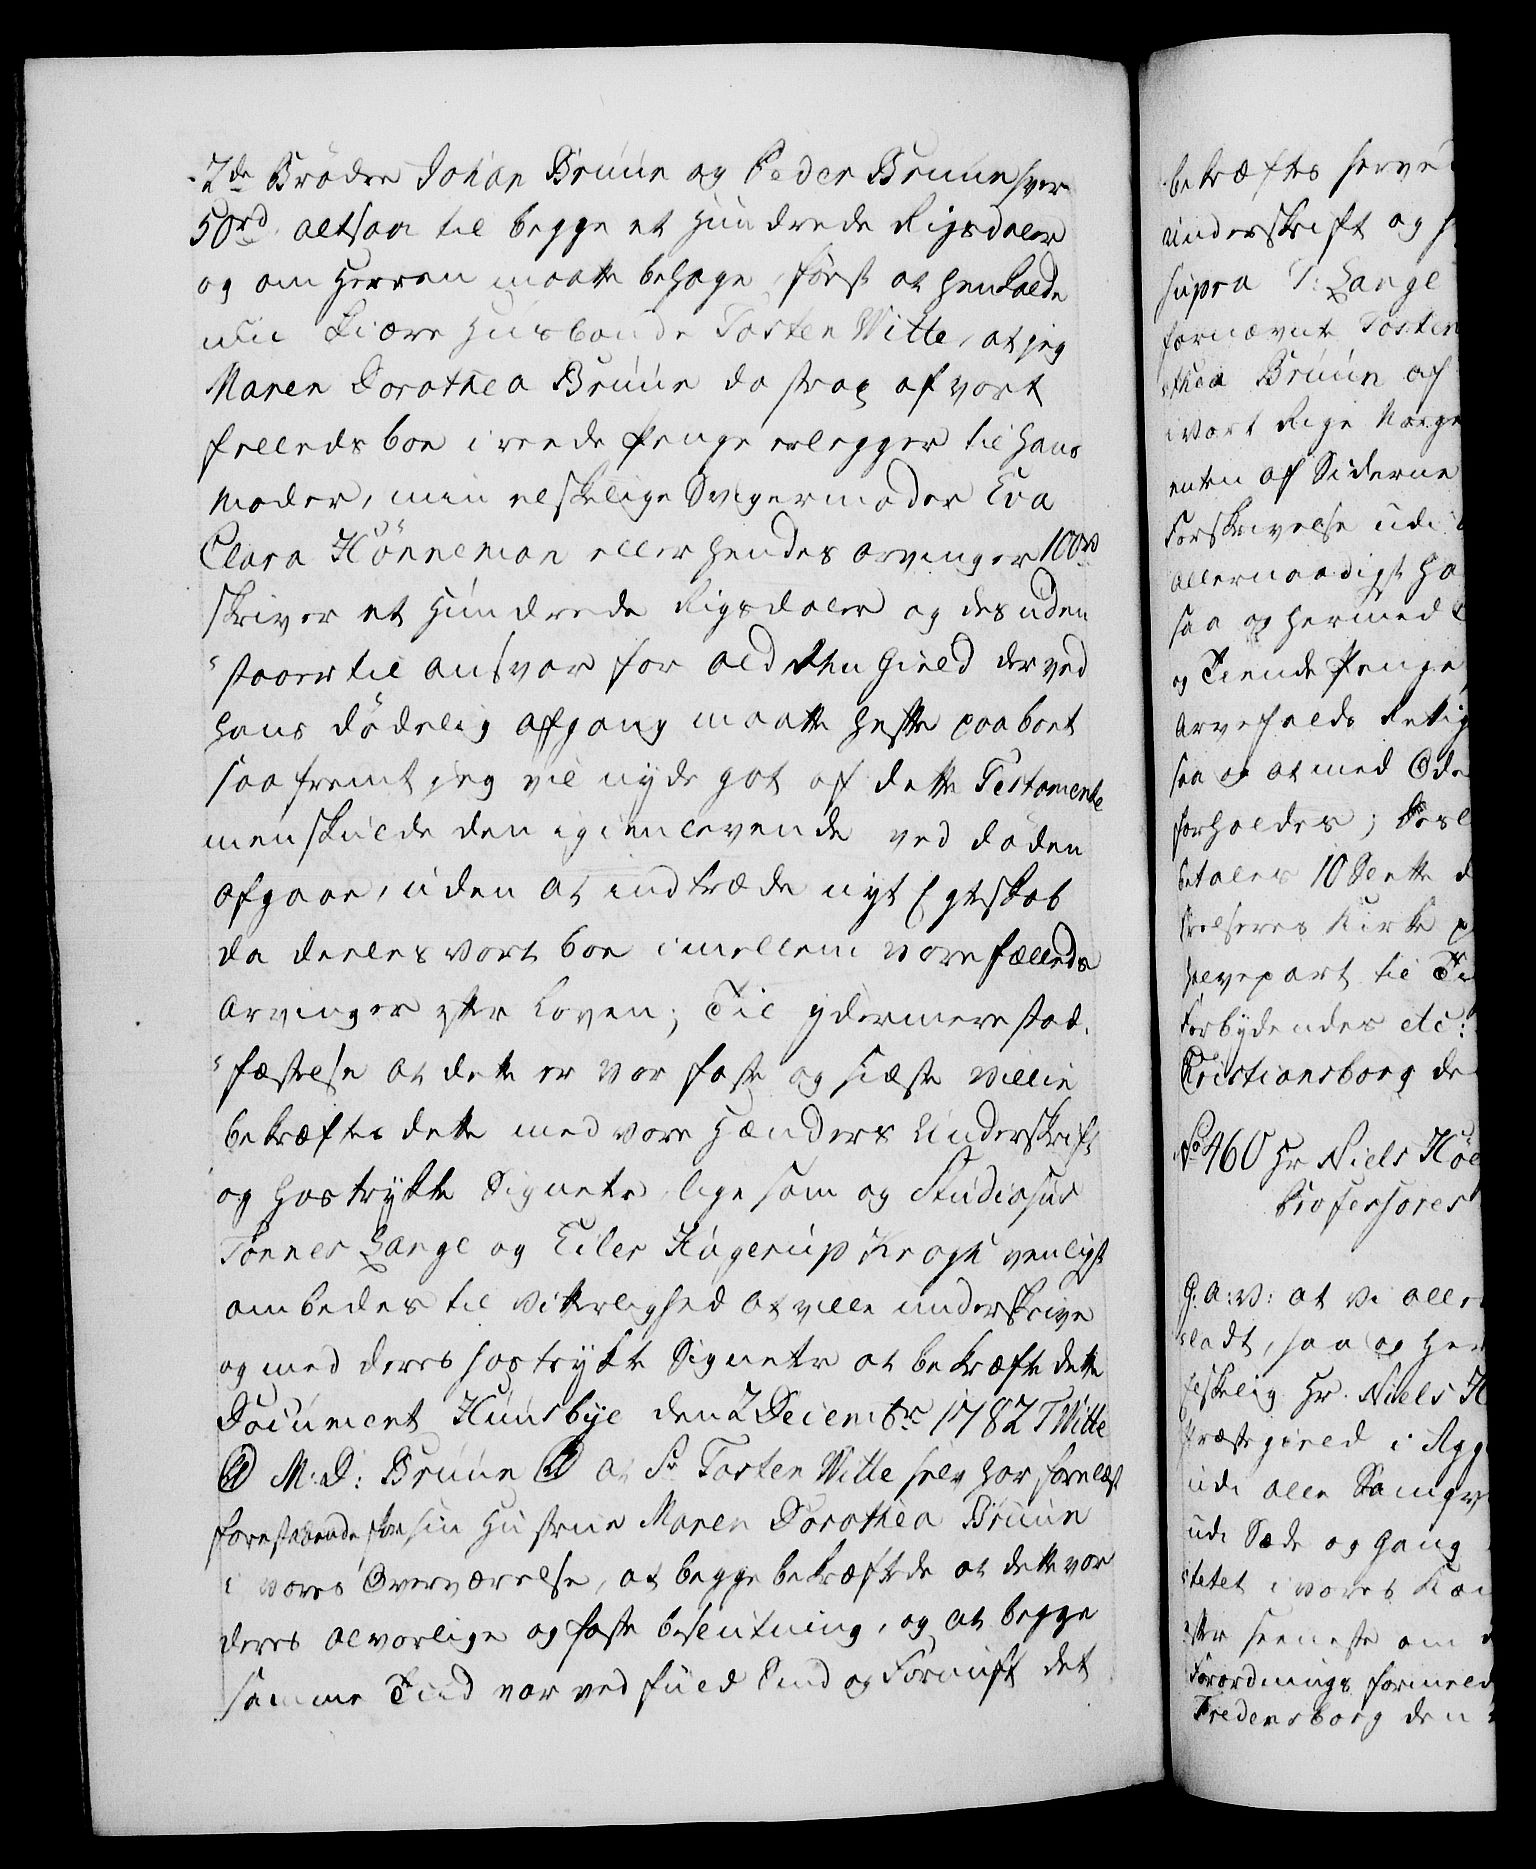 2de Brödre Johan Bruun og Peder Bruun hver
50rd. altsaa til begge et Hundrede Rigsdaler
og om Herren maatte behage först at henkalde
min kiære Husbonde Tosten Witte, at jeg
Maren Dorothea Bruun da strax af vort
felleds boe i reede Penge erlegger til hans
Moder, min elskelige Svigermoder Eva
Clara Hönneman eller hendes arvinger 100rd
skriver et Hundrede Rigsdaler og des uden
staaer til ansvar for ald den Gield der ved
hans dödelig afgang maatte hefte paa boet
saa fremt jeg vil nyde got af dette Testamente
men skulde den igienlevende ved döden
afgaae, uden at indtræde nyt Egteskab
da deeles vort boe imellem vore fælleds
Arvinger efter Loven; Til ydermere stad-
fæstelse at dette er vor faste og sidste villie
bekræftes dette med vore Hænders Underskrift
og hostrykte Signeter, lige som og Studiosus
Tönnes Lange og Eiler Hagerup Krogh venligst
ombedes til vitterlighed at ville underskrive
og med deres hostrykte Signeter at bekræfte dette
Document Hunsbye den 2 Decembr 1782 T Witte
M: D: Bruun at Sr Tosten Witte selv har forelæst
forestaaende for sin Hustrue Maren Dorothea Bruun
i vores Overværelse, at begge bekræftede at dette var
deres alvorlige og faste beslutning, og at begge
samme Tiid var ved fuld Sind og Fornuft det
bekræftes herved
underskrift og
supra T: Lange
fornævnte Tosten
thea Bruun af
i Vort Rige Norge
enten af Siderne
Forskrivelse udi
allernaadigst ha
saa og hermed
og Tiende Penge
Arvefalds Rettig
saa og at med
forholdes;
betales 10 Slette d
frelseres Kirke
halvepart til
Forbydendes etc:
Kristiansborg de
No 460 Hr Niels Höe
Professores
G: A: V: at vi aller
ladt, saa og her
elskelig Hr. Niels H
Præstegield i
udi alle
udi Sæde og gang
tetet i vores
efter seeneste om
Forordnings formeld
Fredensborg den